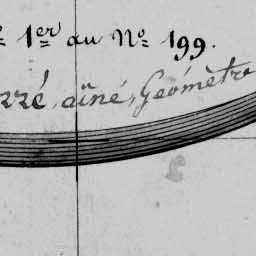 1er au No 199.
aîné, Géomètre